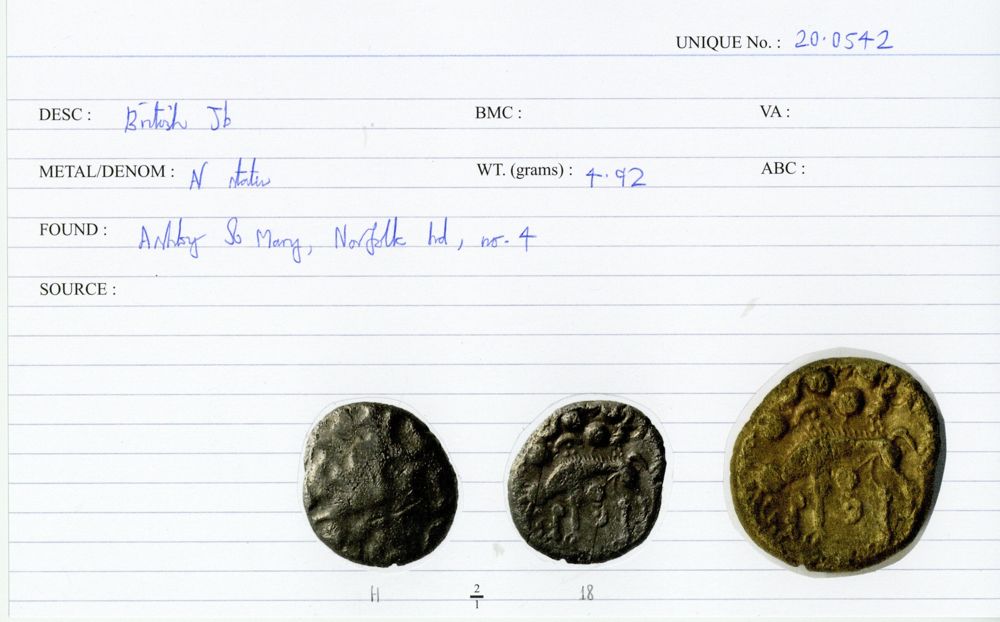 UNIQUE No. : 20.0542
DESC : British Jb BMC : VA :
METAL/DENOM : N stater WT. (grams) : 4.92 ABC :
FOUND : Ashby St Mary, Norfolk hd, no. 4
SOURCE :
H 2/1 18